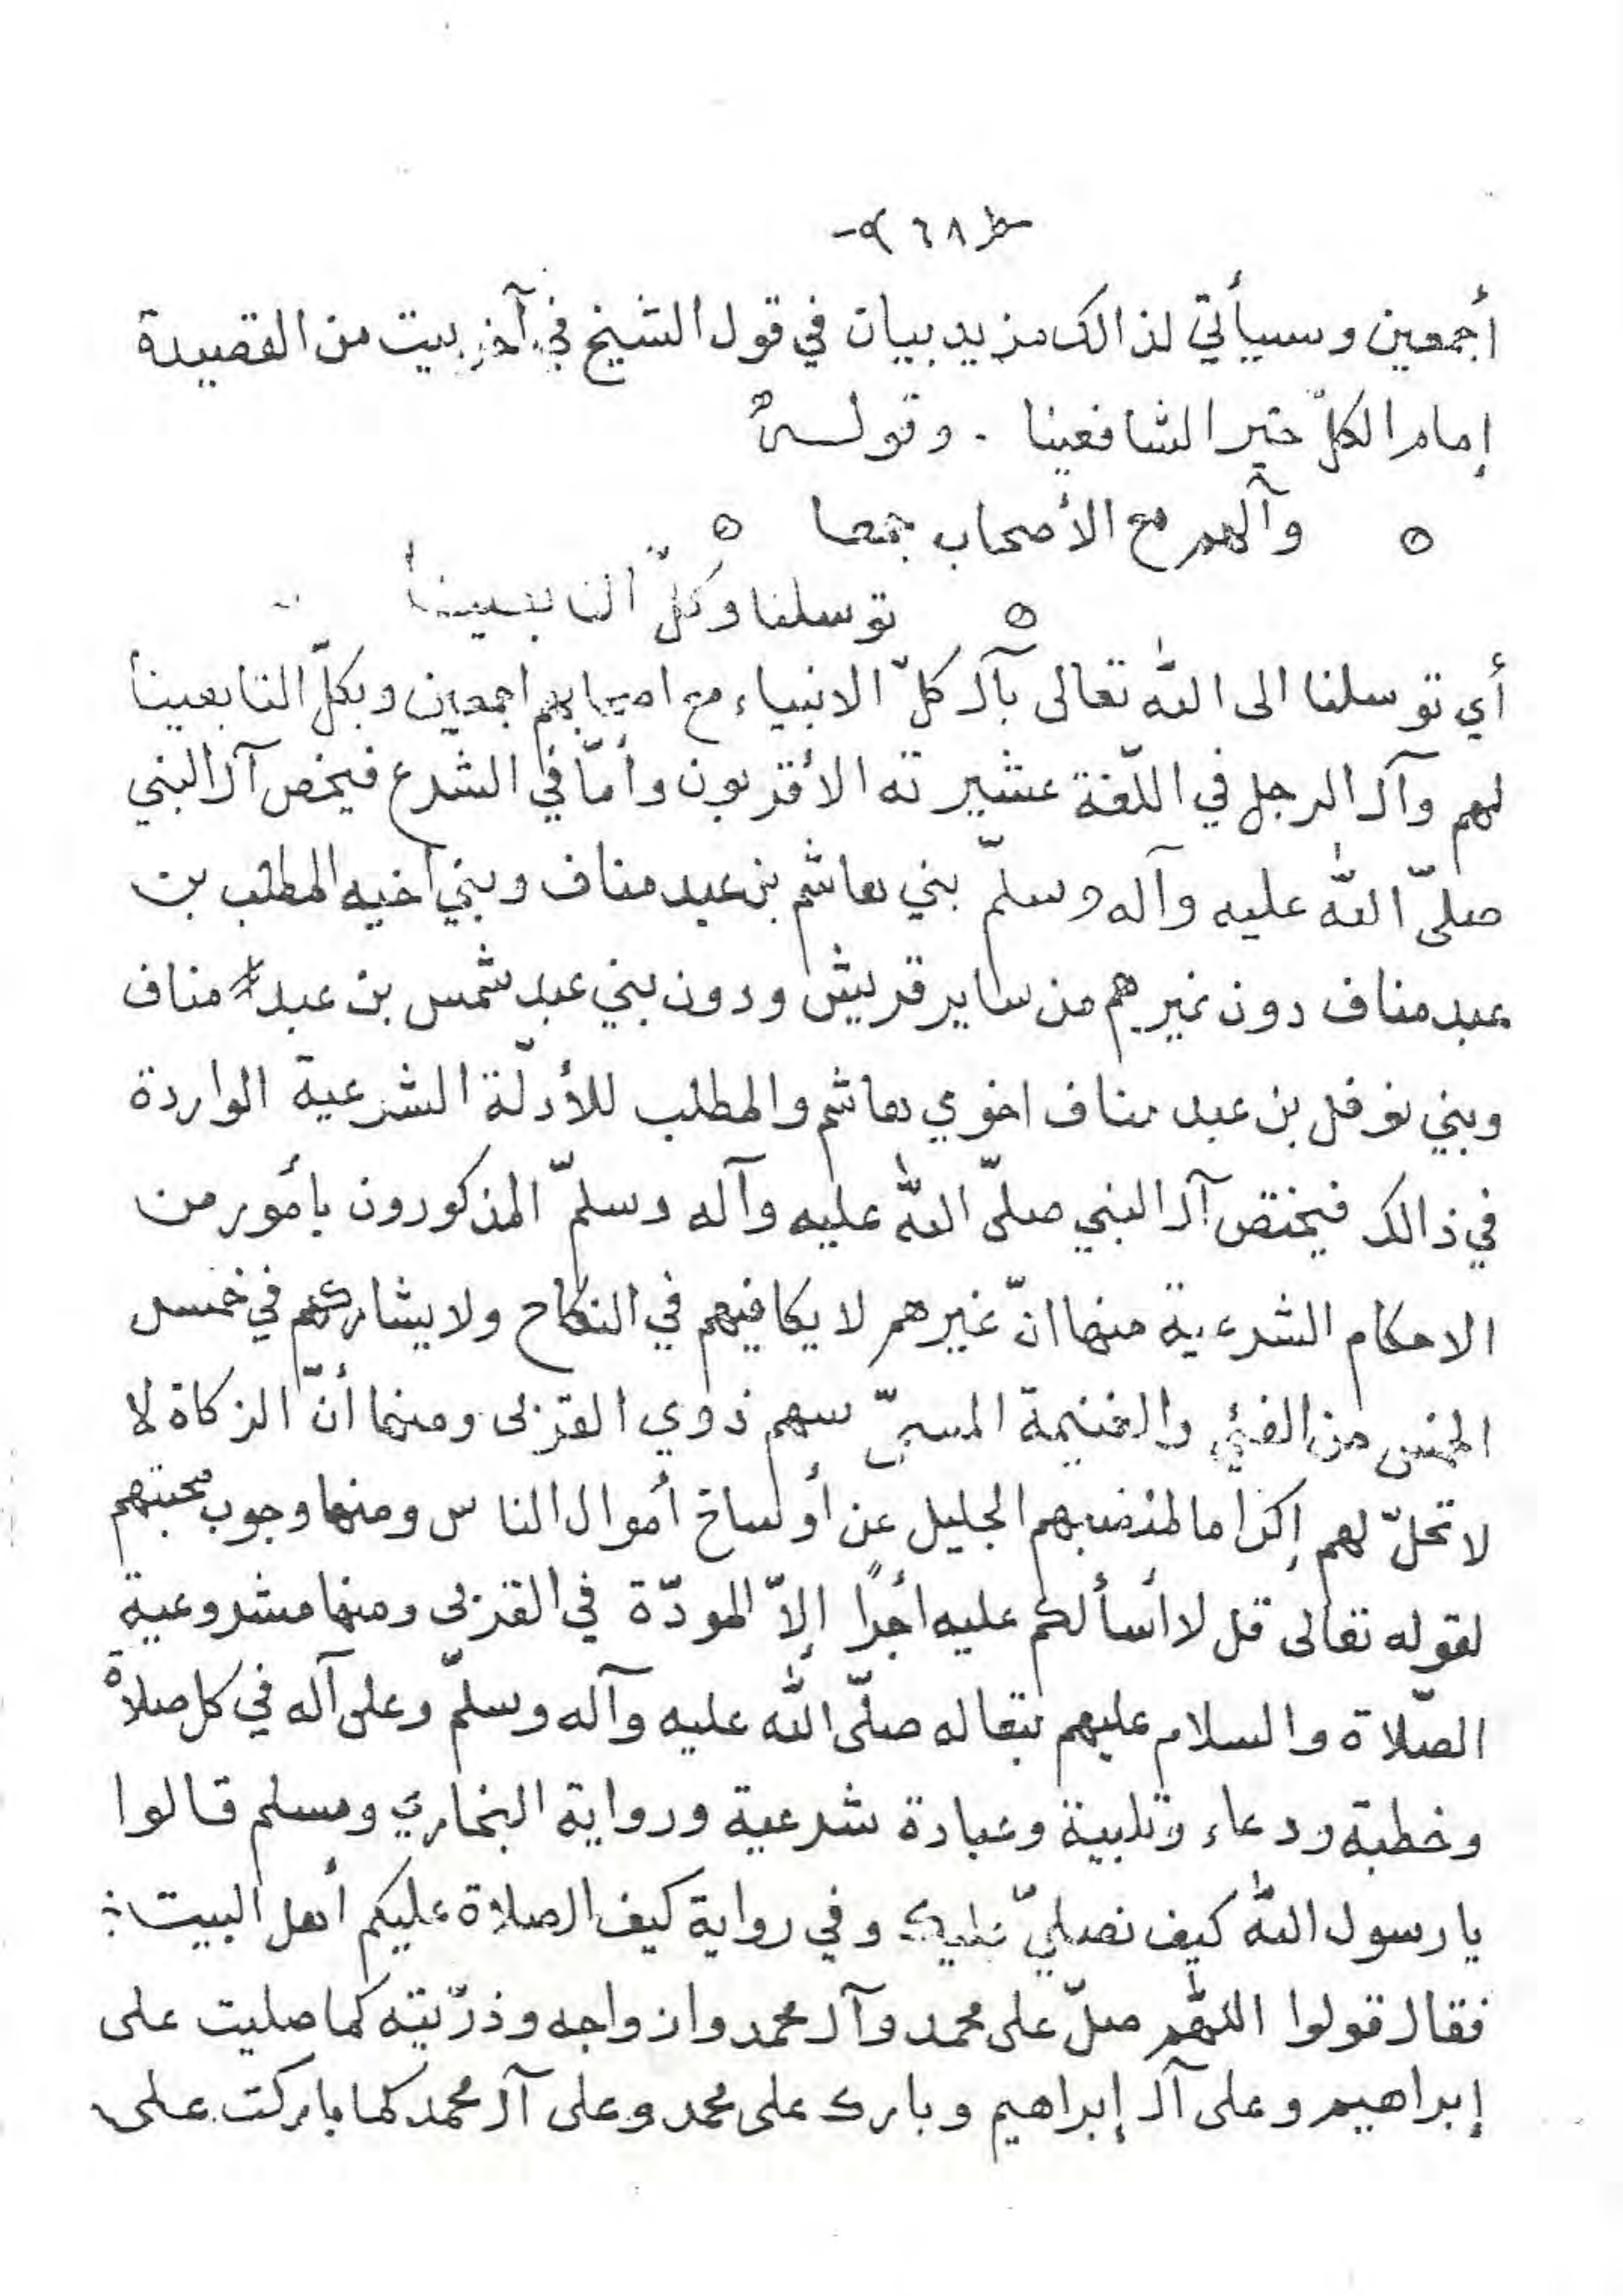 ٦٨
أجمعين وسيأتي لذالك مزيد بيان في قول الشيخ في آخر بيت من القصيدة
إمام الكلّ خير الشافعينا . وقوله
وآلهم مع الأصحاب جمعا
توسلنا وكلّ التابعينا
أي توسلنا الى الله تعالى بآل كلّ الانبياء مع اصحابهم اجمعين وبكلّ التابعينا
لهم وآل الرجل في اللّغة عشيرته الأقربون وأمّا في الشرع فيخص آل النبي
صلّى الله عليه وآله وسلّم بني هاشم بن عبد مناف وبني أخيه المطلب بن
عبد مناف دون غيرهم من ساير قريش ودون بني عبد شمس بن عبد مناف
وبني نوفل بن عبد مناف اخوي هاشم والمطلب للأدلّة الشرعية الواردة
في ذالك فيختص آل النبي صلّى الله عليه وآله وسلّم المذكورون بأمور من
الاحكام الشرعية منها انّ غيرهم لا يكافيهم في النكاح ولا يشاركهم في خمس
الخمس من الفئي والغنيمة المسمّى سهم ذوي القربى ومنها أنّ الزكاة لا
لا تحلّ لهم إكراما لمنصبهم الجليل عن أوساخ أموال الناس ومنها وجوب محبتهم
لقوله تعالى قل لا أسألكم عليه أجرًا إلاّ المودّة في القربى ومنها مشروعية
الصّلاة والسلام عليهم تبعا له صلّى الله عليه وآله وسلّم وعلى آله في كل صلاة
وخطبة ودعاء وتلبية وعبادة شرعية ورواية البخاري ومسلم قالوا
يا رسول الله كيف نصلّي عليك وفي رواية كيف الصلاة عليكم أهل البيت
فقال قولوا اللهم صلّ على محمد وآل محمد وازواجه وذرّيته كما صليت على
إبراهيم وعلى آل إبراهيم وبارك على محمد وعلى آل محمد كما باركت على